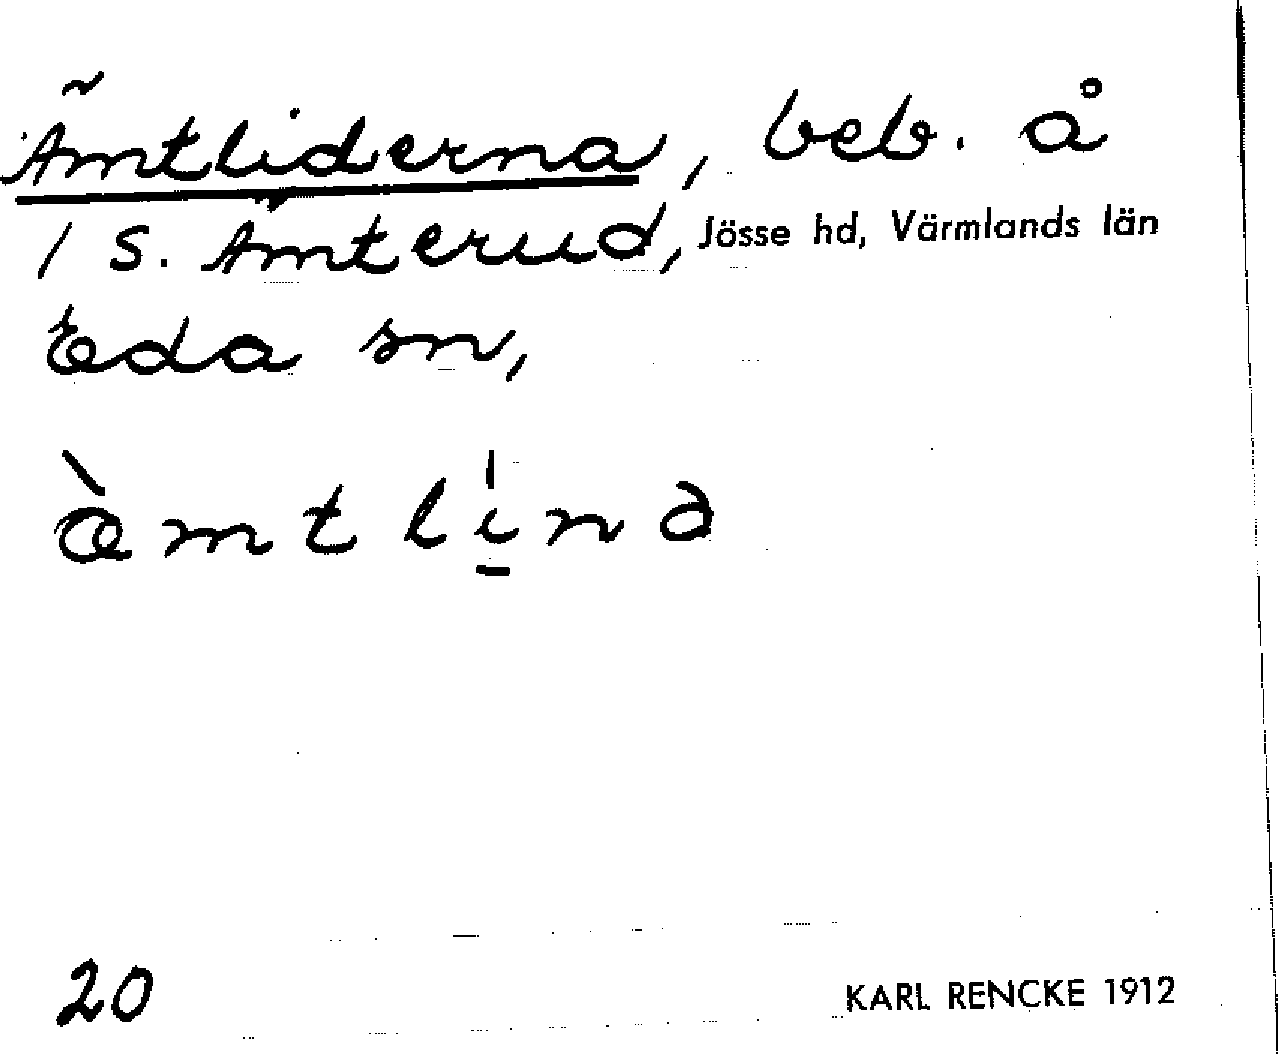 Ämtliderna, beb. å
/ S. Ämterud, Jösse hd, Värmlands län
Eda sn,
æ̀mtlı̠̍nə
20
KARL RENCKE 1912